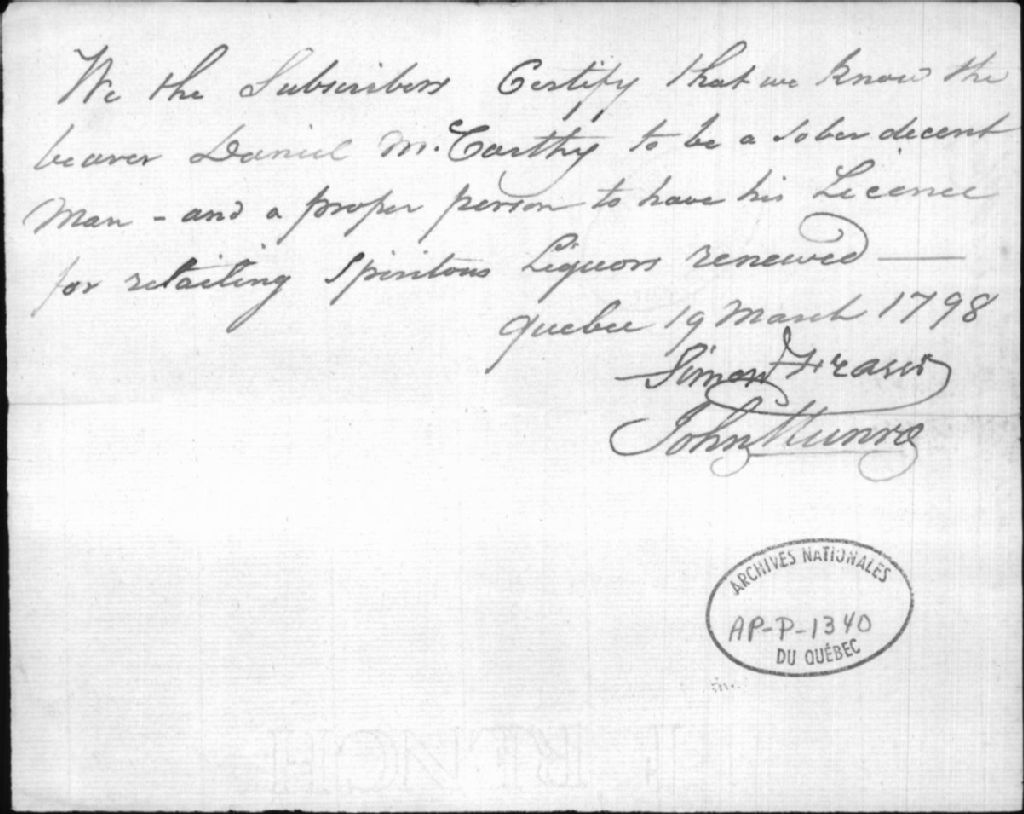 We the Subscribers Certify that we know the
bearer Daniel McCarthy to be a sober decent
Man - and a proper person to have his Licence
for retailing Spiritous Liquors renewed —
Quebec 19 March 1798
Simon Fraser
John Munro
ARCHIVES NATIONALES
AP-P-1340
DU QUÉBEC